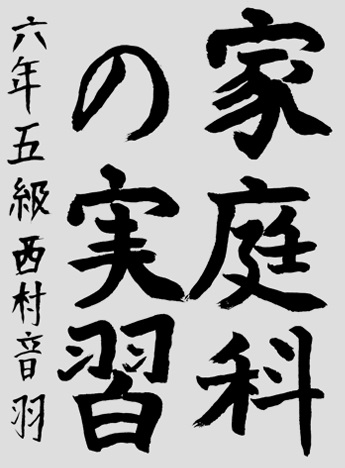 家庭科
の実習
六年五級西村音羽